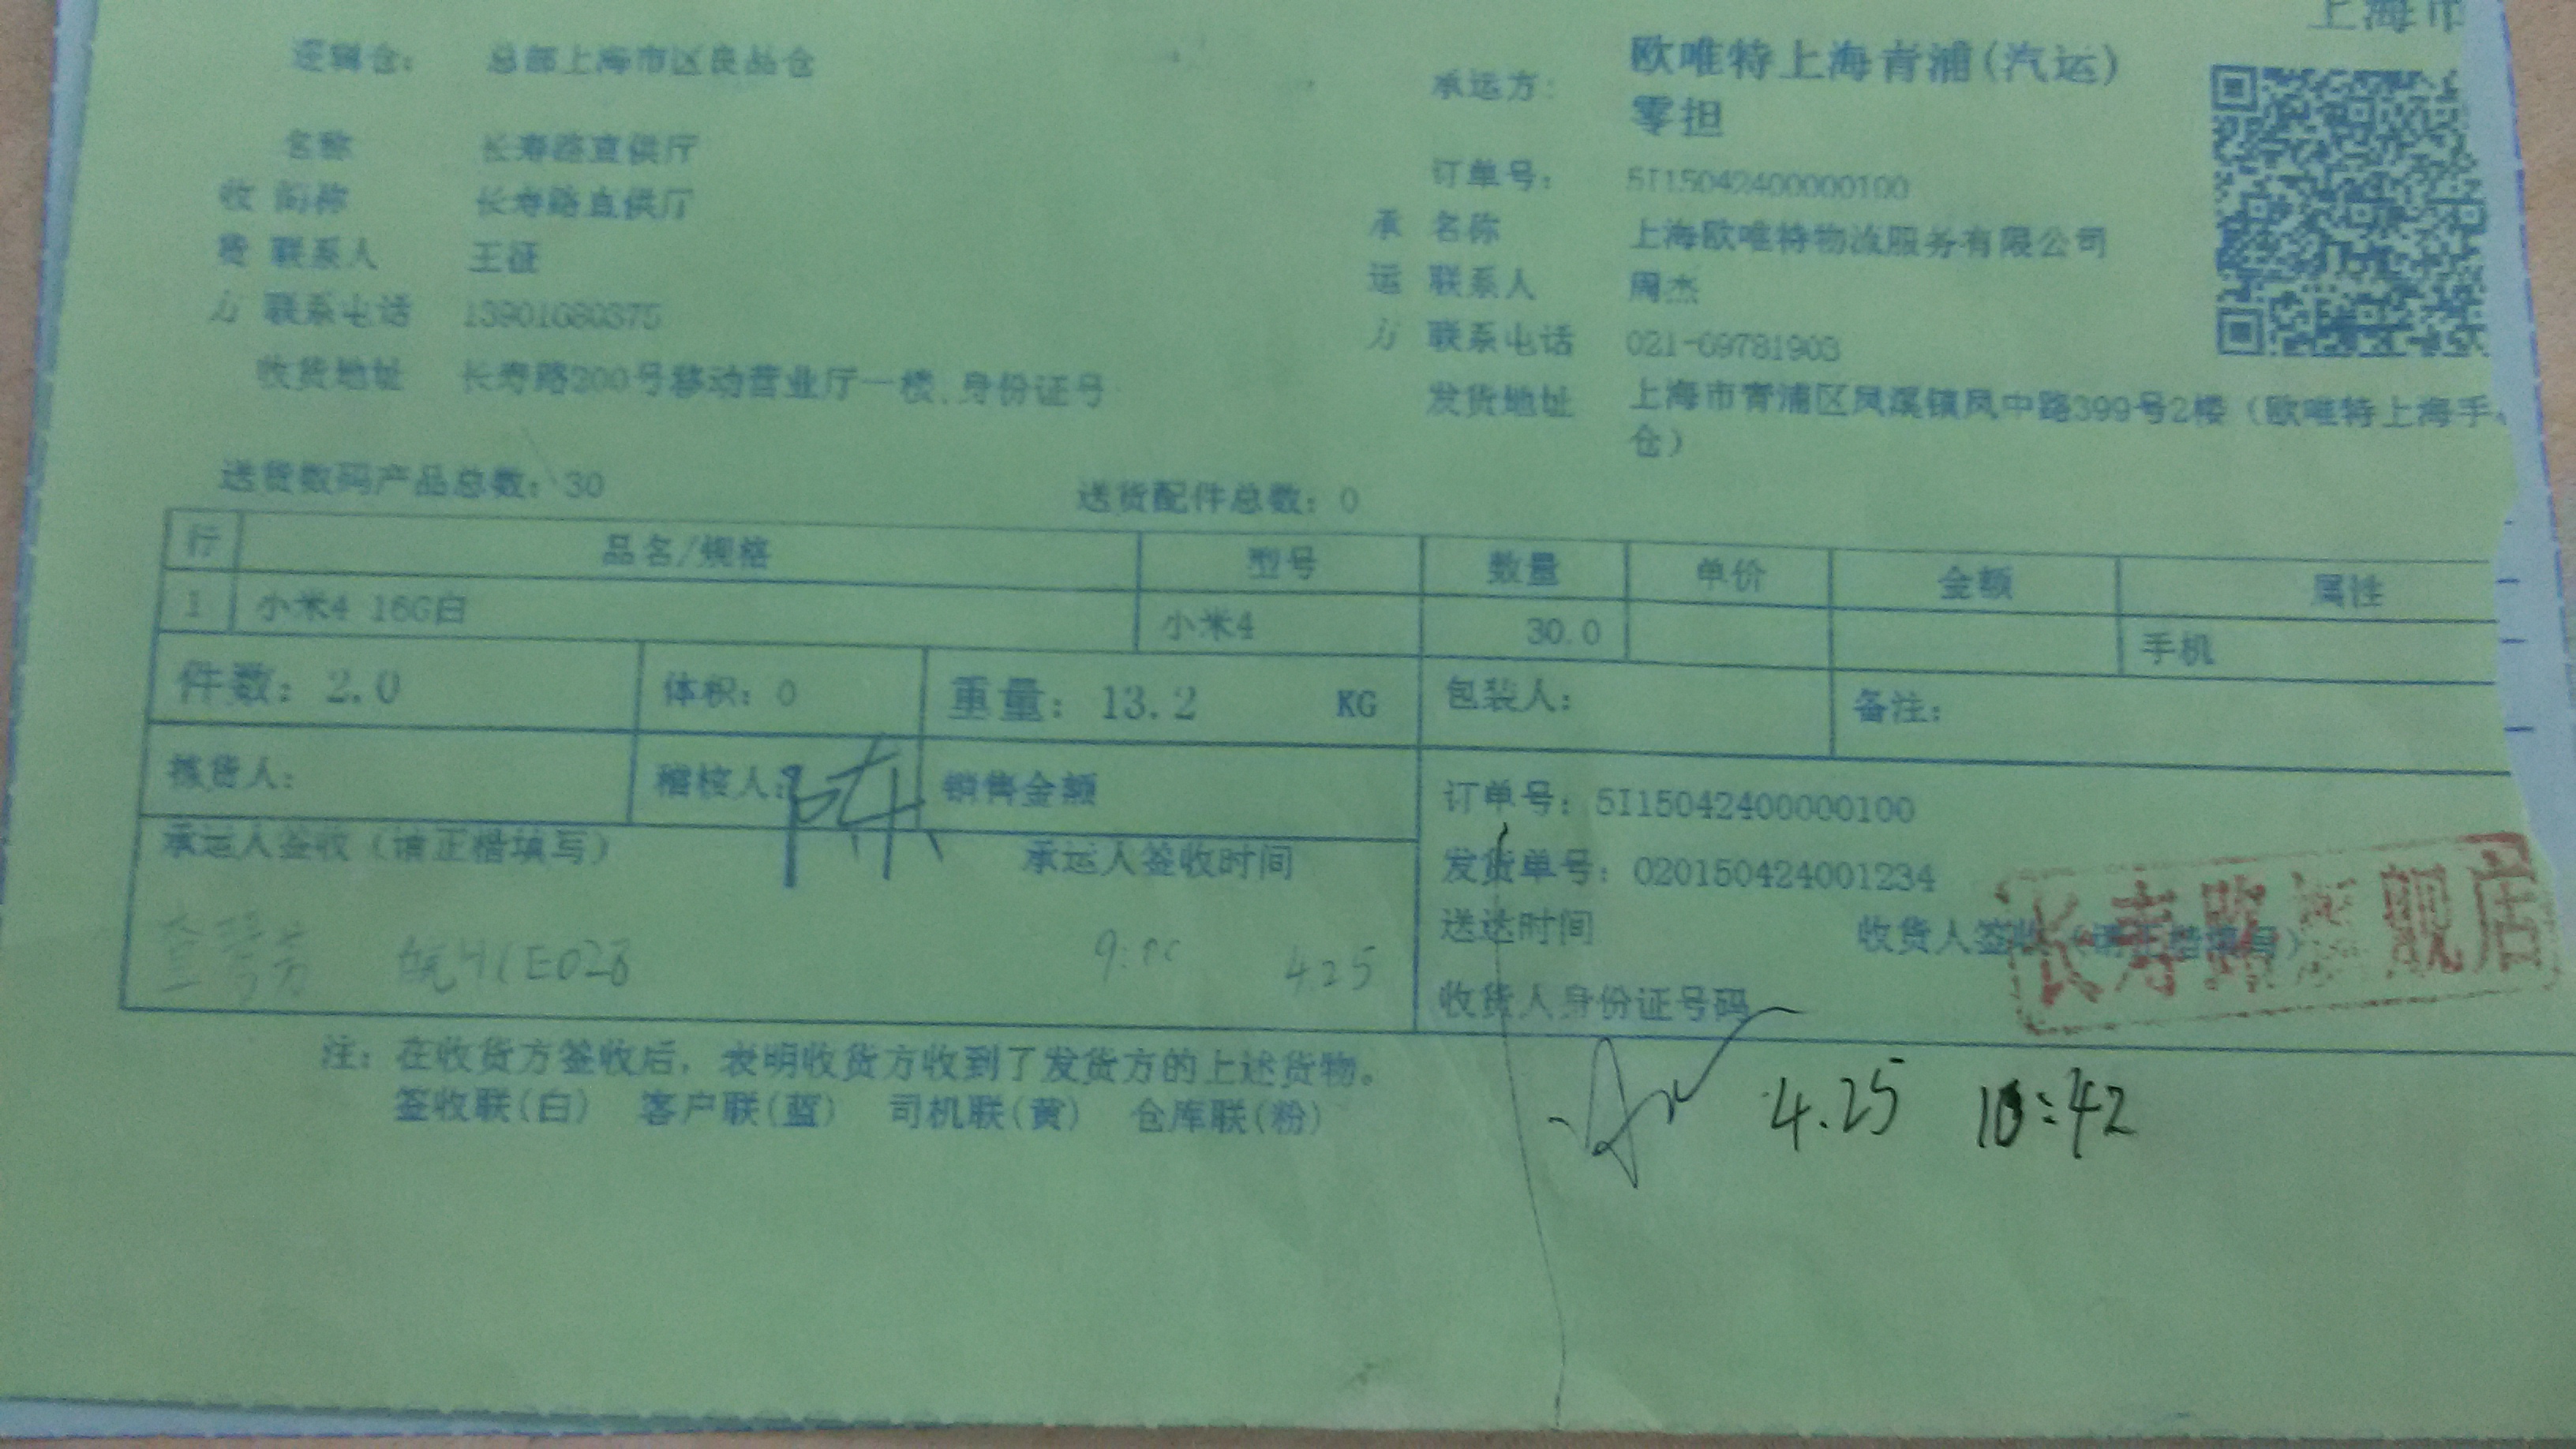 上海市
逻辑仓： 总部上海市区良品仓
承运方： 欧唯特上海青浦(汽运)
零担
名称 长寿路直供厅
订单号： 5I15042400000100
收 简称 长寿路直供厅
承 名称 上海欧唯特物流服务有限公司
货 联系人 王征
运 联系人 周杰
方 联系电话 13901680375
方 联系电话 021-69781903
收货地址 长寿路200号移动营业厅一楼、身份证号
发货地址 上海市青浦区凤溪镇凤中路399号2楼（欧唯特上海手
仓）
送货数码产品总数：30 送货配件总数：0
行 品名/规格 型号 数量 单价 金额 属性
1 小米4 16G白 小米4 30.0 手机
件数：2.0 体积：0 重量：13.2 KG 包装人： 备注：
拣货人： 稽核人：陈 销售金额
订单号：5I15042400000100
承运人签收（请正楷填写） 承运人签收时间
发货单号：020150424001234
送达时间 收货人签收（请正楷填写）
长寿路旗舰店
E028 4.25
收货人身份证号码
注：在收货方签收后，表明收货方收到了发货方的上述货物。
签收联(白) 客户联(蓝) 司机联(黄) 仓库联(粉)
4.25 10:42